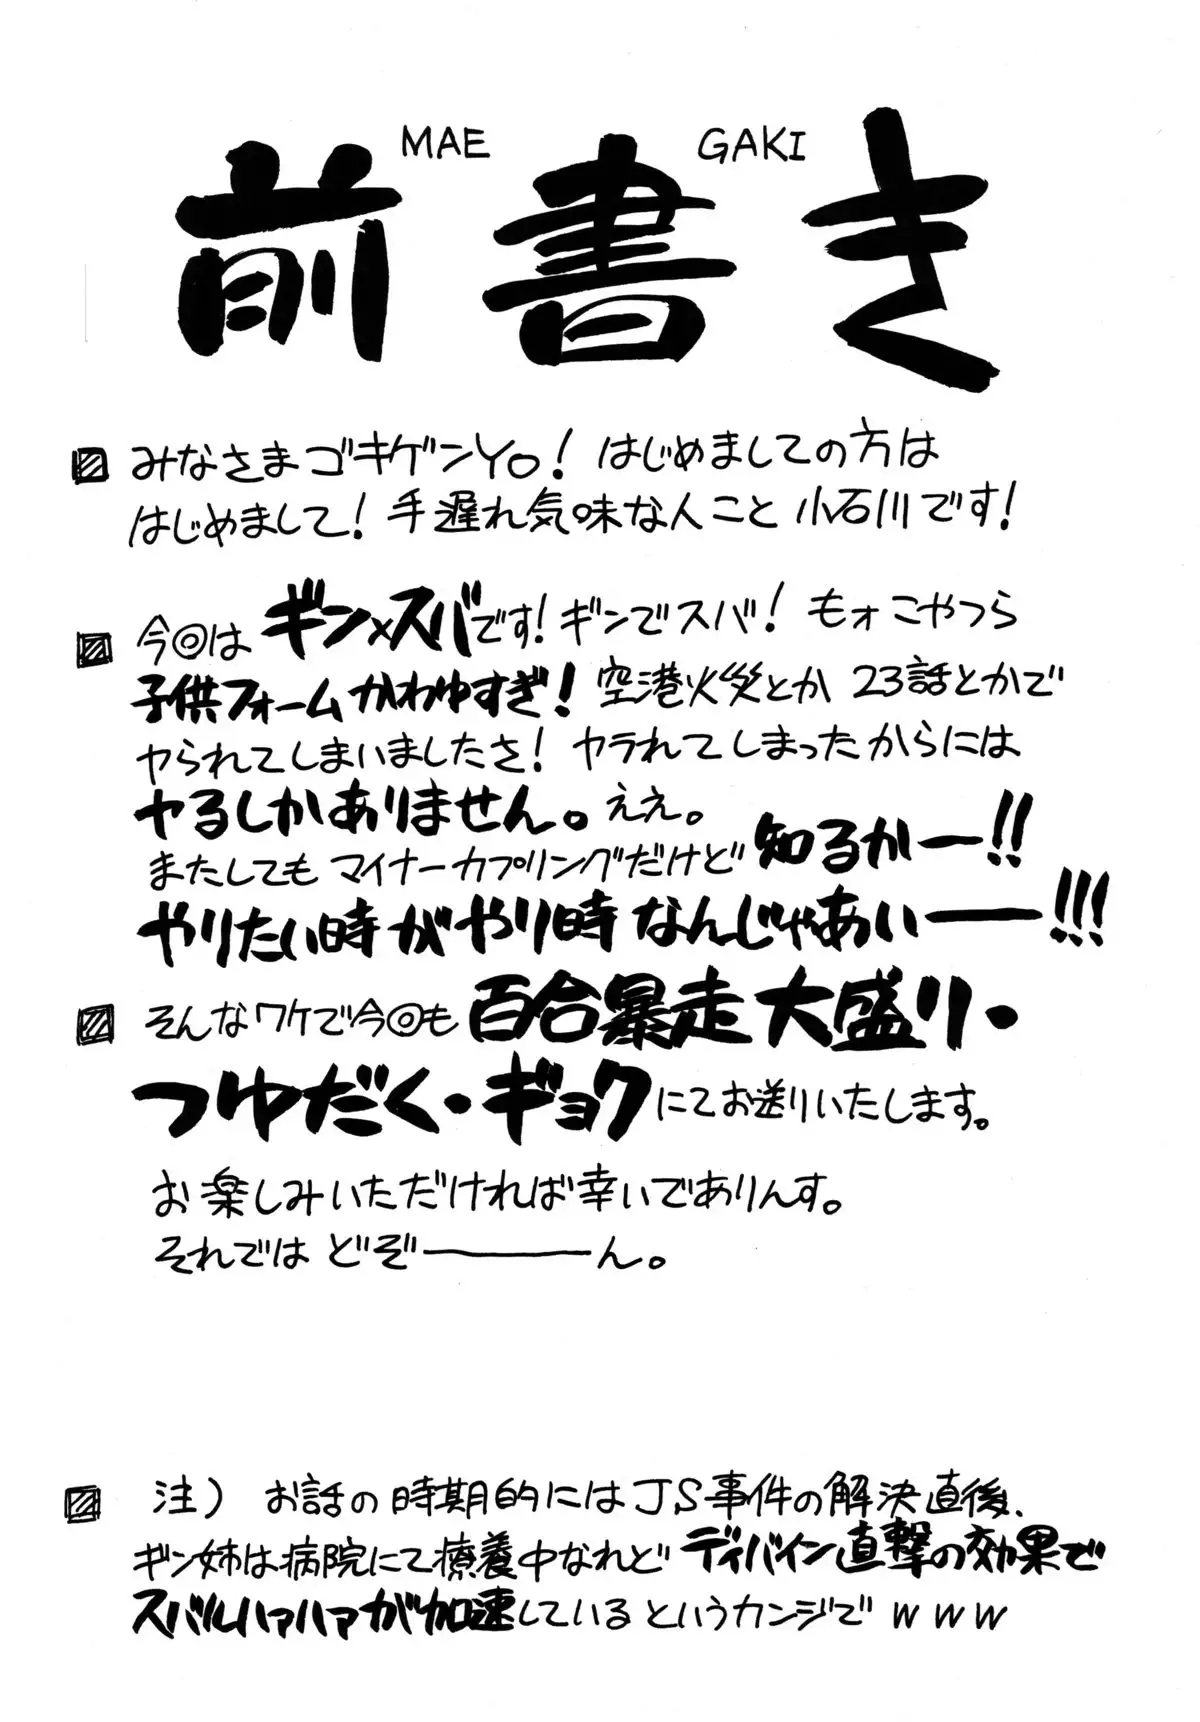 MAE GAKI
前書き
みなさまゴキゲンYo! はじめましての方は
はじめまして! 手遅れ気味な人こと 小石川です!
今◎は ギン×スバです! ギンでスバ! もォこやつら
子供フォームかわゆすぎ! 空港火災とか 23話とかで
ヤられてしまいましたさ! ヤラれてしまったからには
ヤるしかありません。ええ。
またしても マイナーカプリングだけど 知るかー!!
やりたい時がやり時なんじゃあいー!!!
そんなワケで今◎も 百合暴走大盛り・
つゆだく・ギョクにてお送りいたします。
お楽しみいただければ幸いでありんす。
それでは どぞーん。
注) お話の時期的にはJS事件の解決直後、
ギン姉は病院にて療養中なれど ディバイン直撃の効果で
スバルハァハァが加速しているというカンジで www